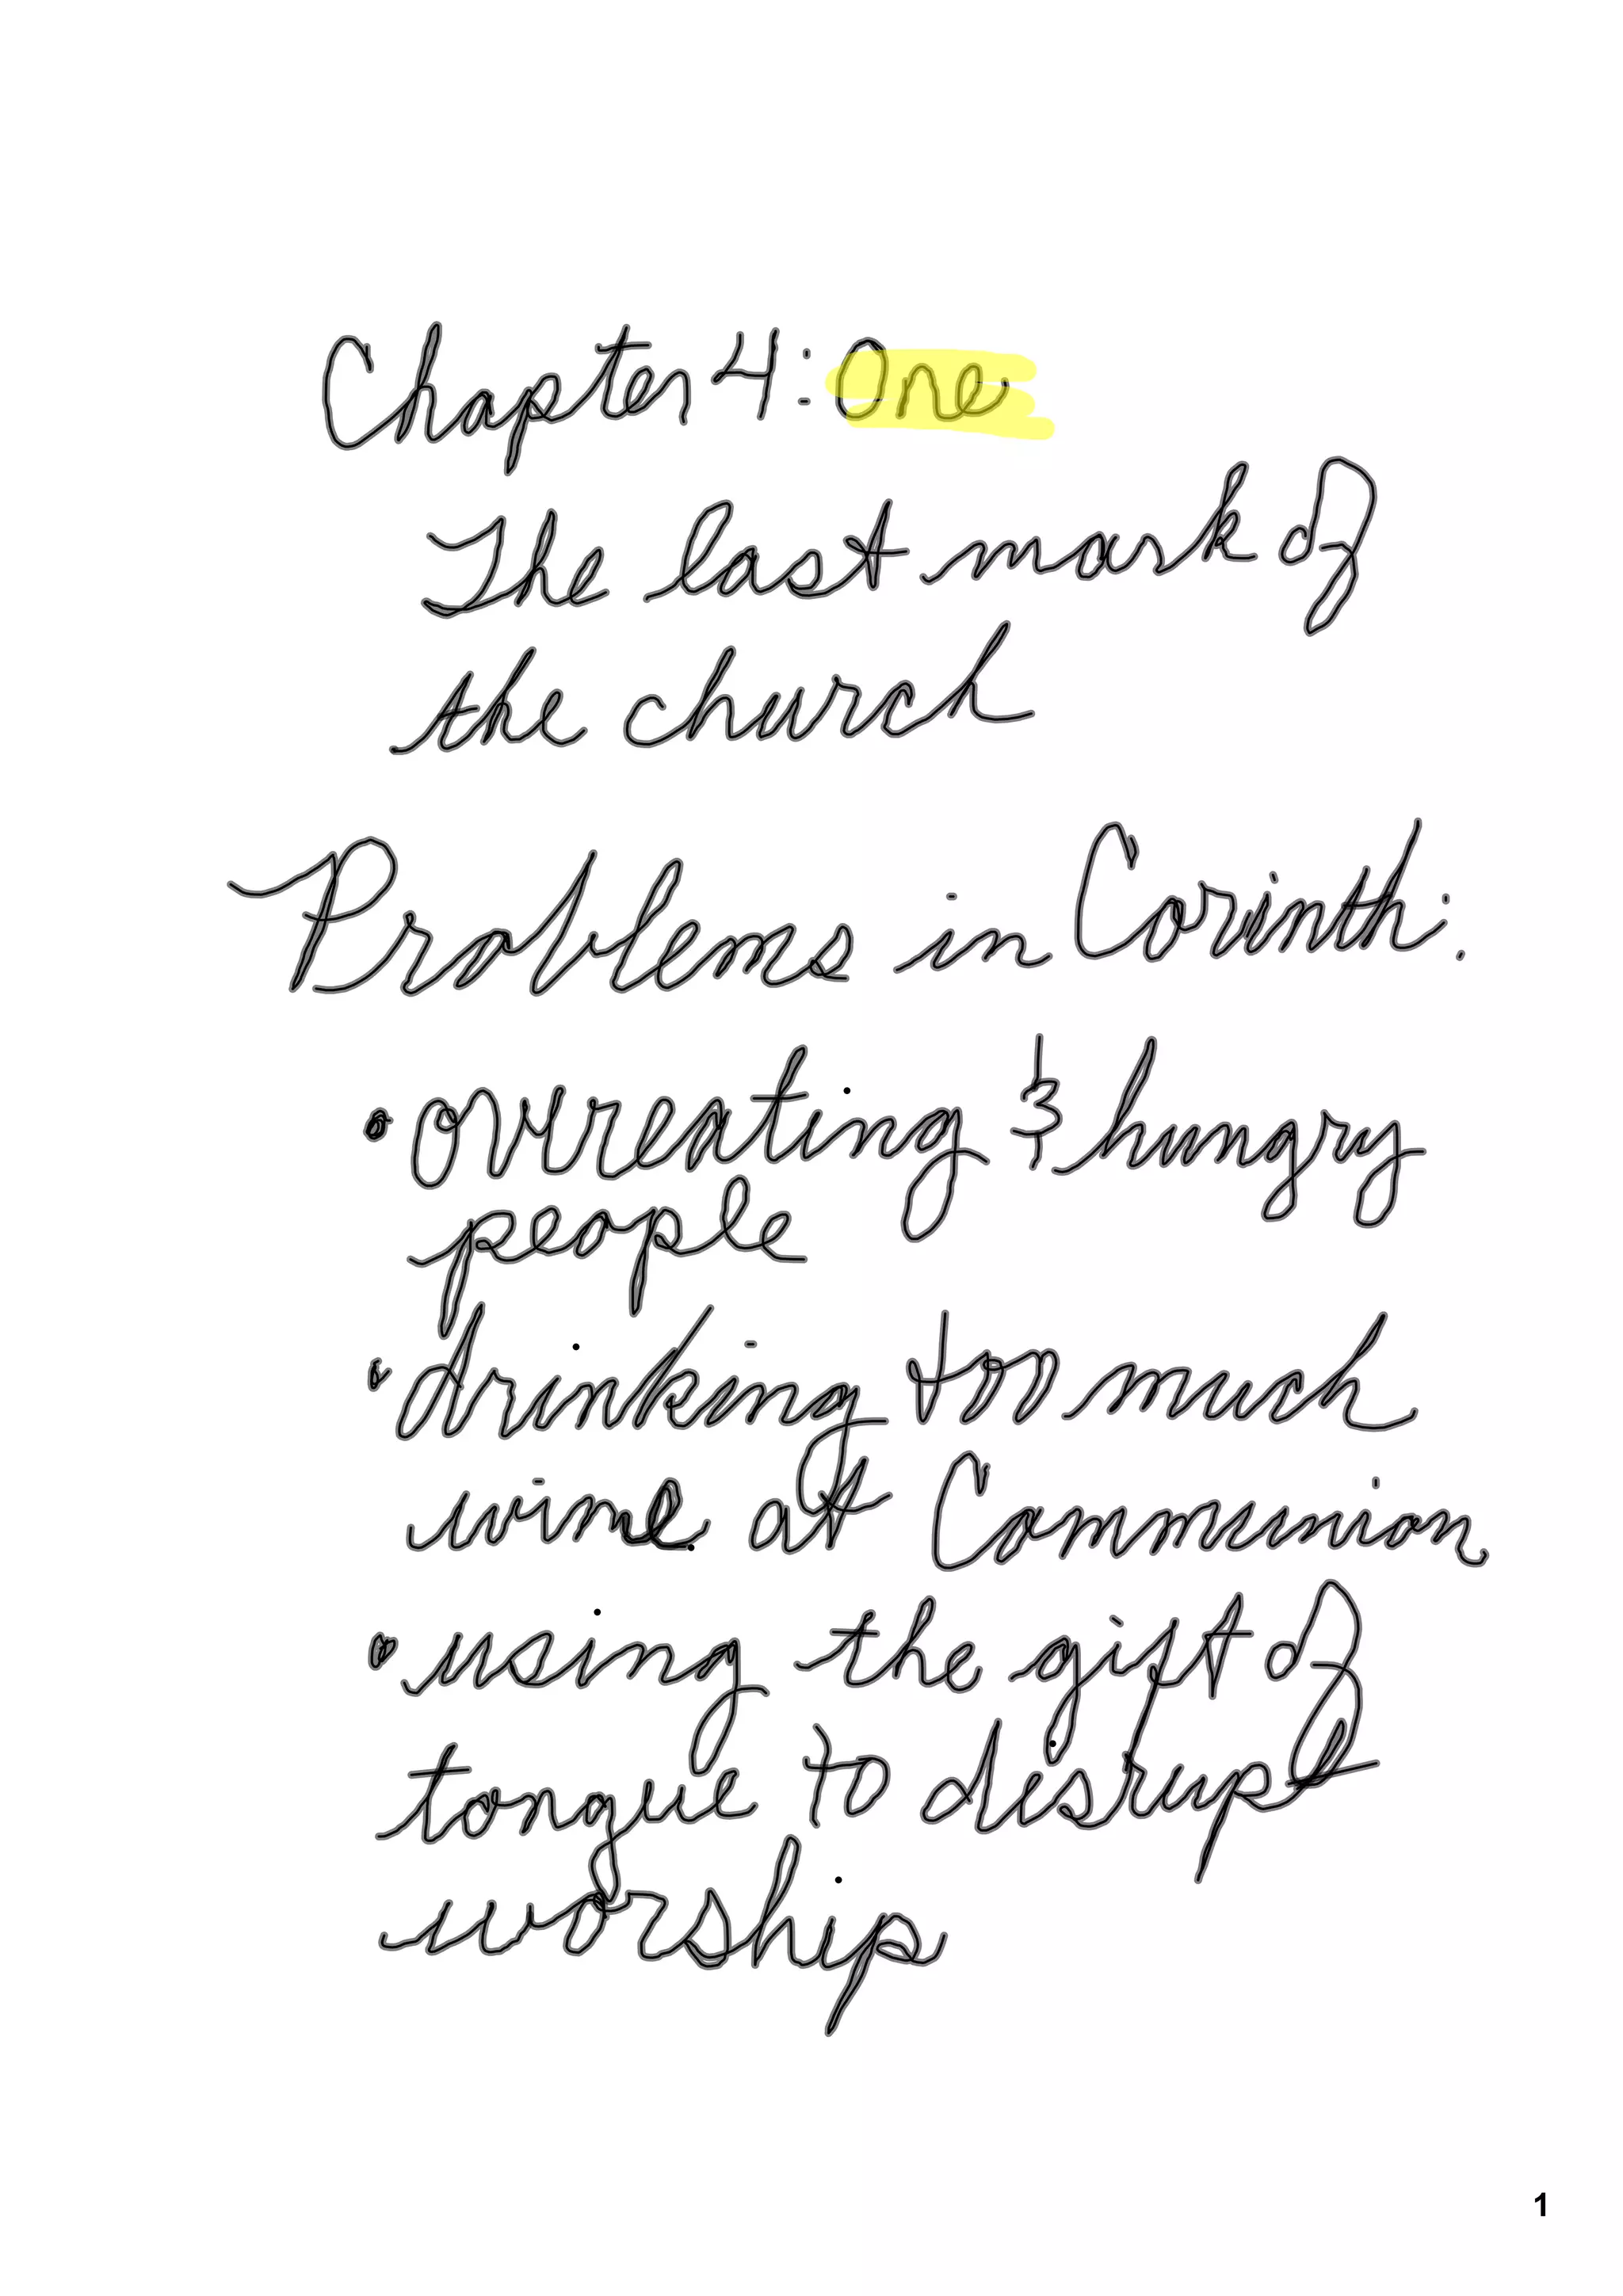 Chapter 4: One
The last mark of
the church
Problems in Corinth:
• overeating & hungry
people
• drinking too much
wine at Communion
• using the gift of
tongue to disrupt
worship
1